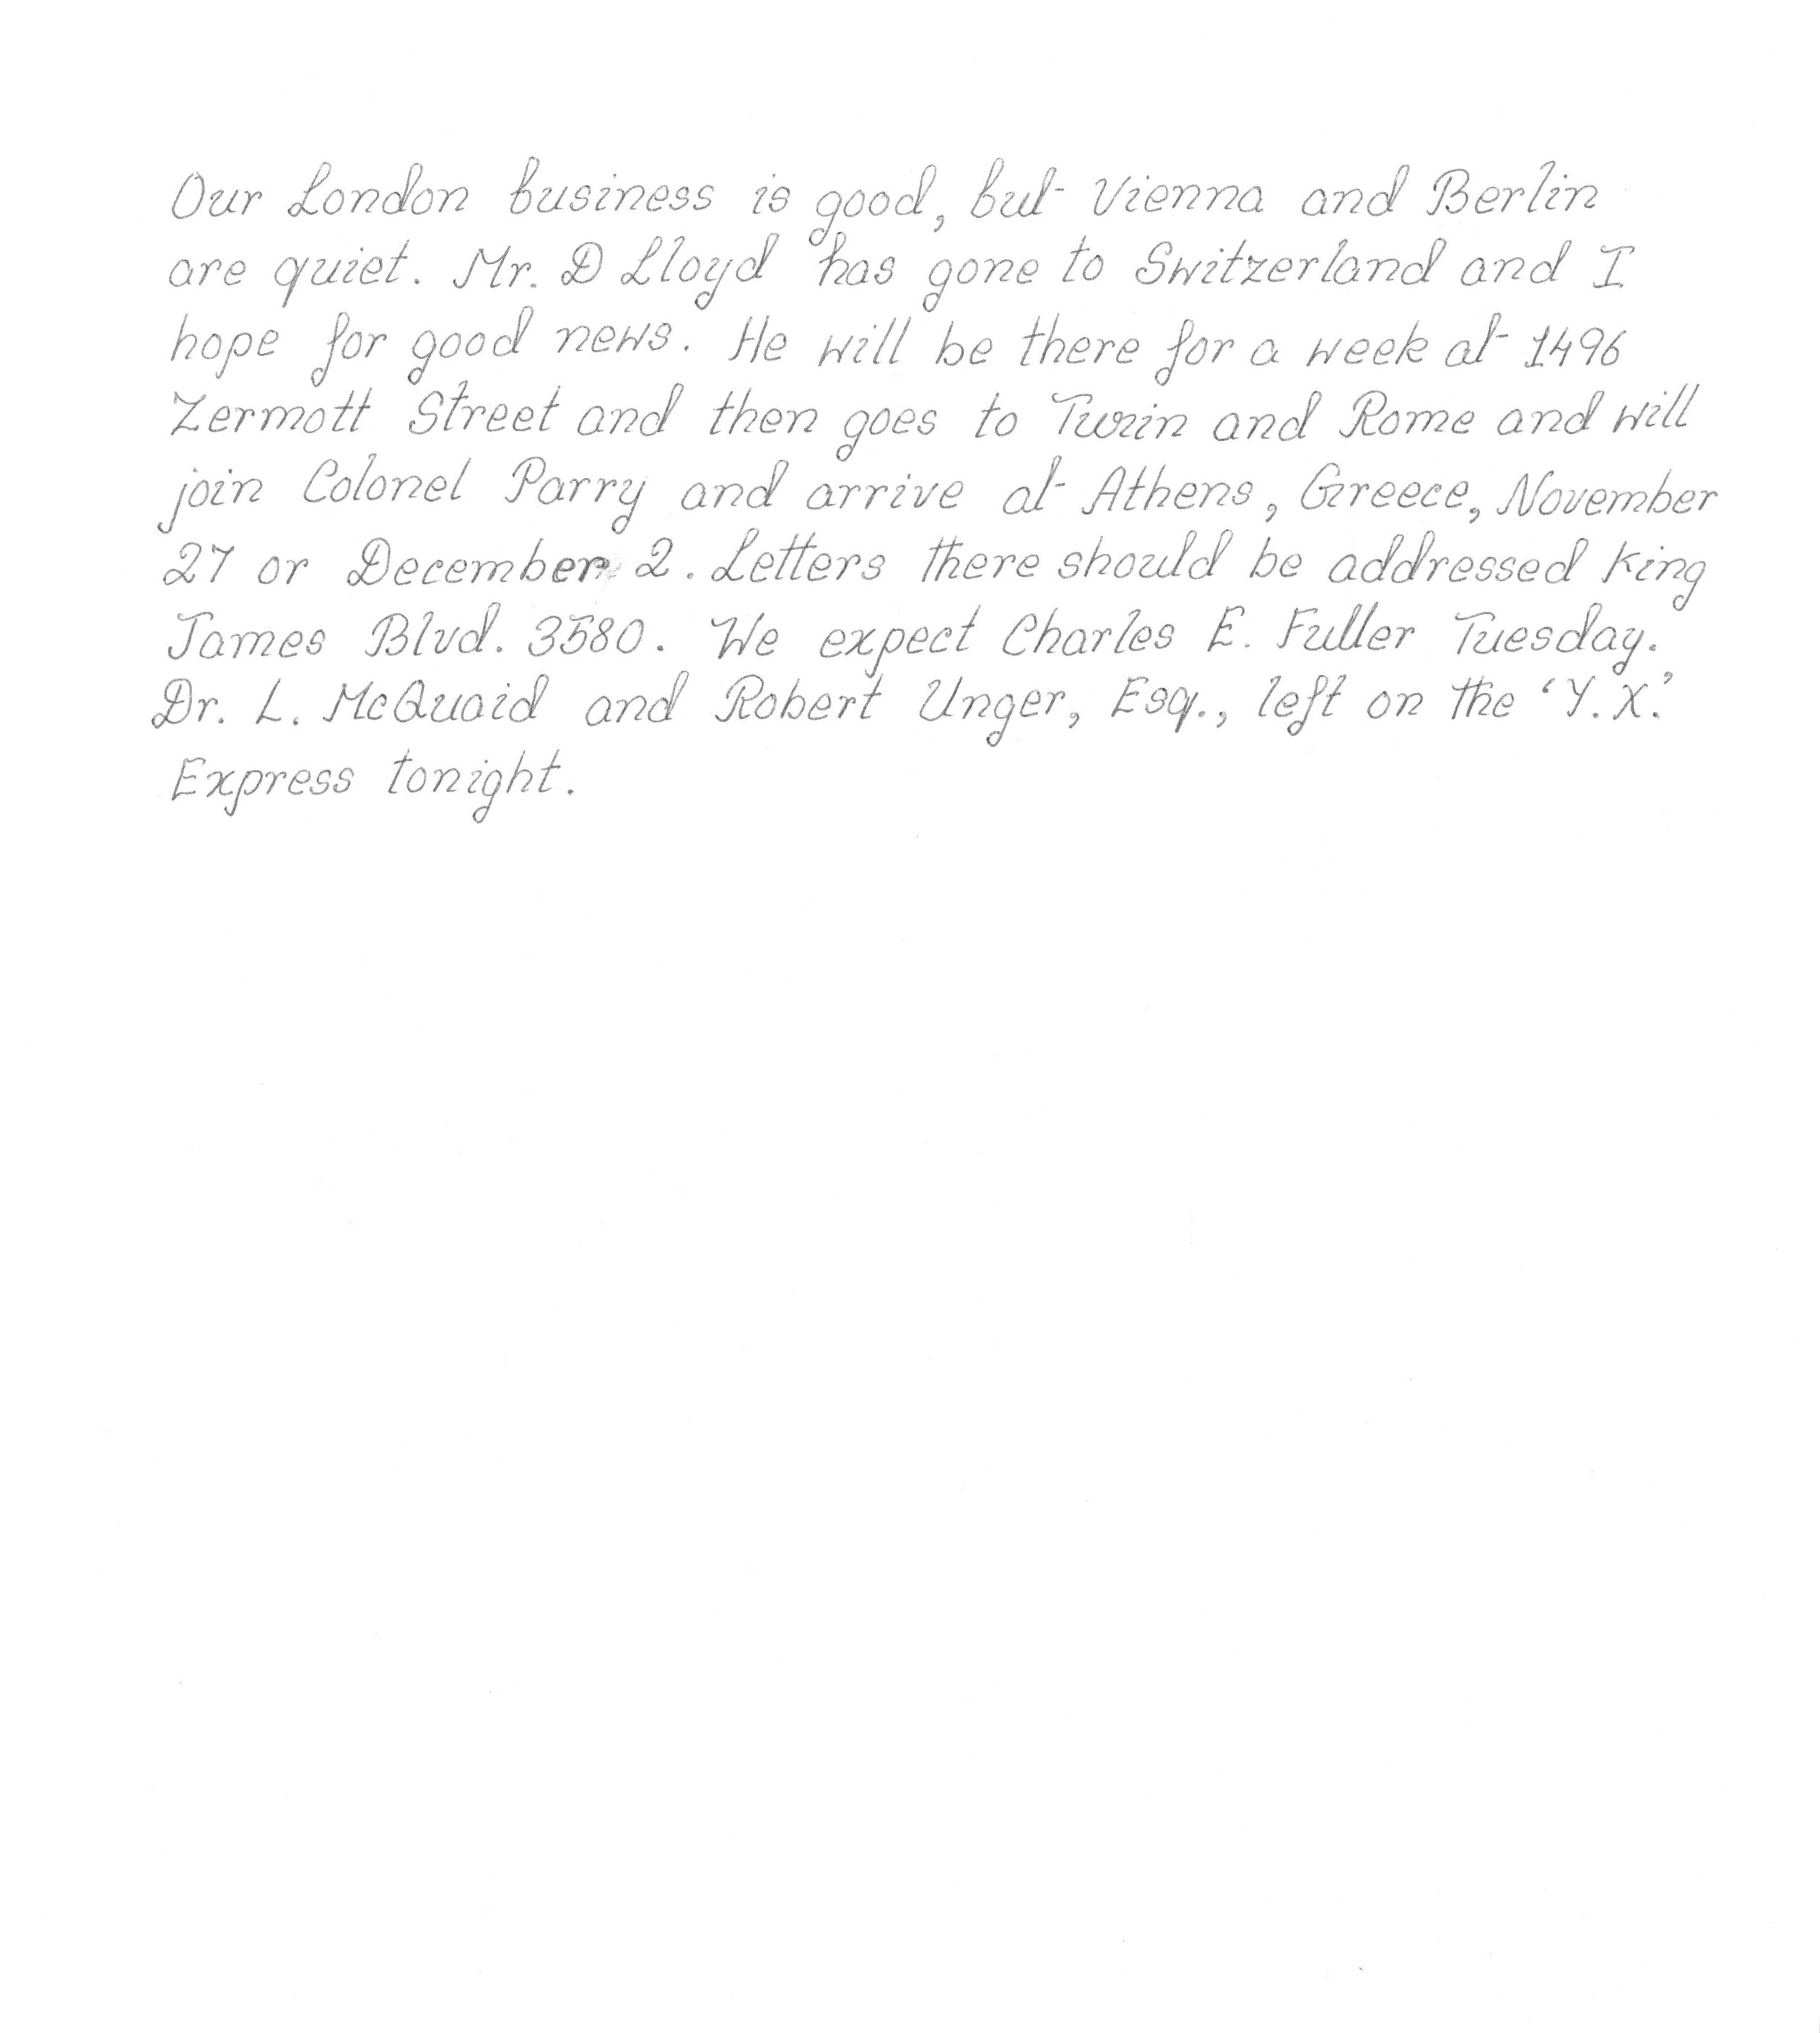 Our London business is good, but Vienna and Berlin
are quiet. Mr. D Lloyd has gone to Switzerland and I
hope for good news. He will be there for a week at 1496
Zermott Street and then goes to Turin and Rome and will
join Colonel Parry and arrive at Athens, Greece, November
27 or December 2. Letters there should be addressed King
James Blvd. 3580. We expect Charles E. Fuller Tuesday.
Dr. L. McQuaid and Robert Unger, Esq., left on the 'Y.X.'
Express tonight.